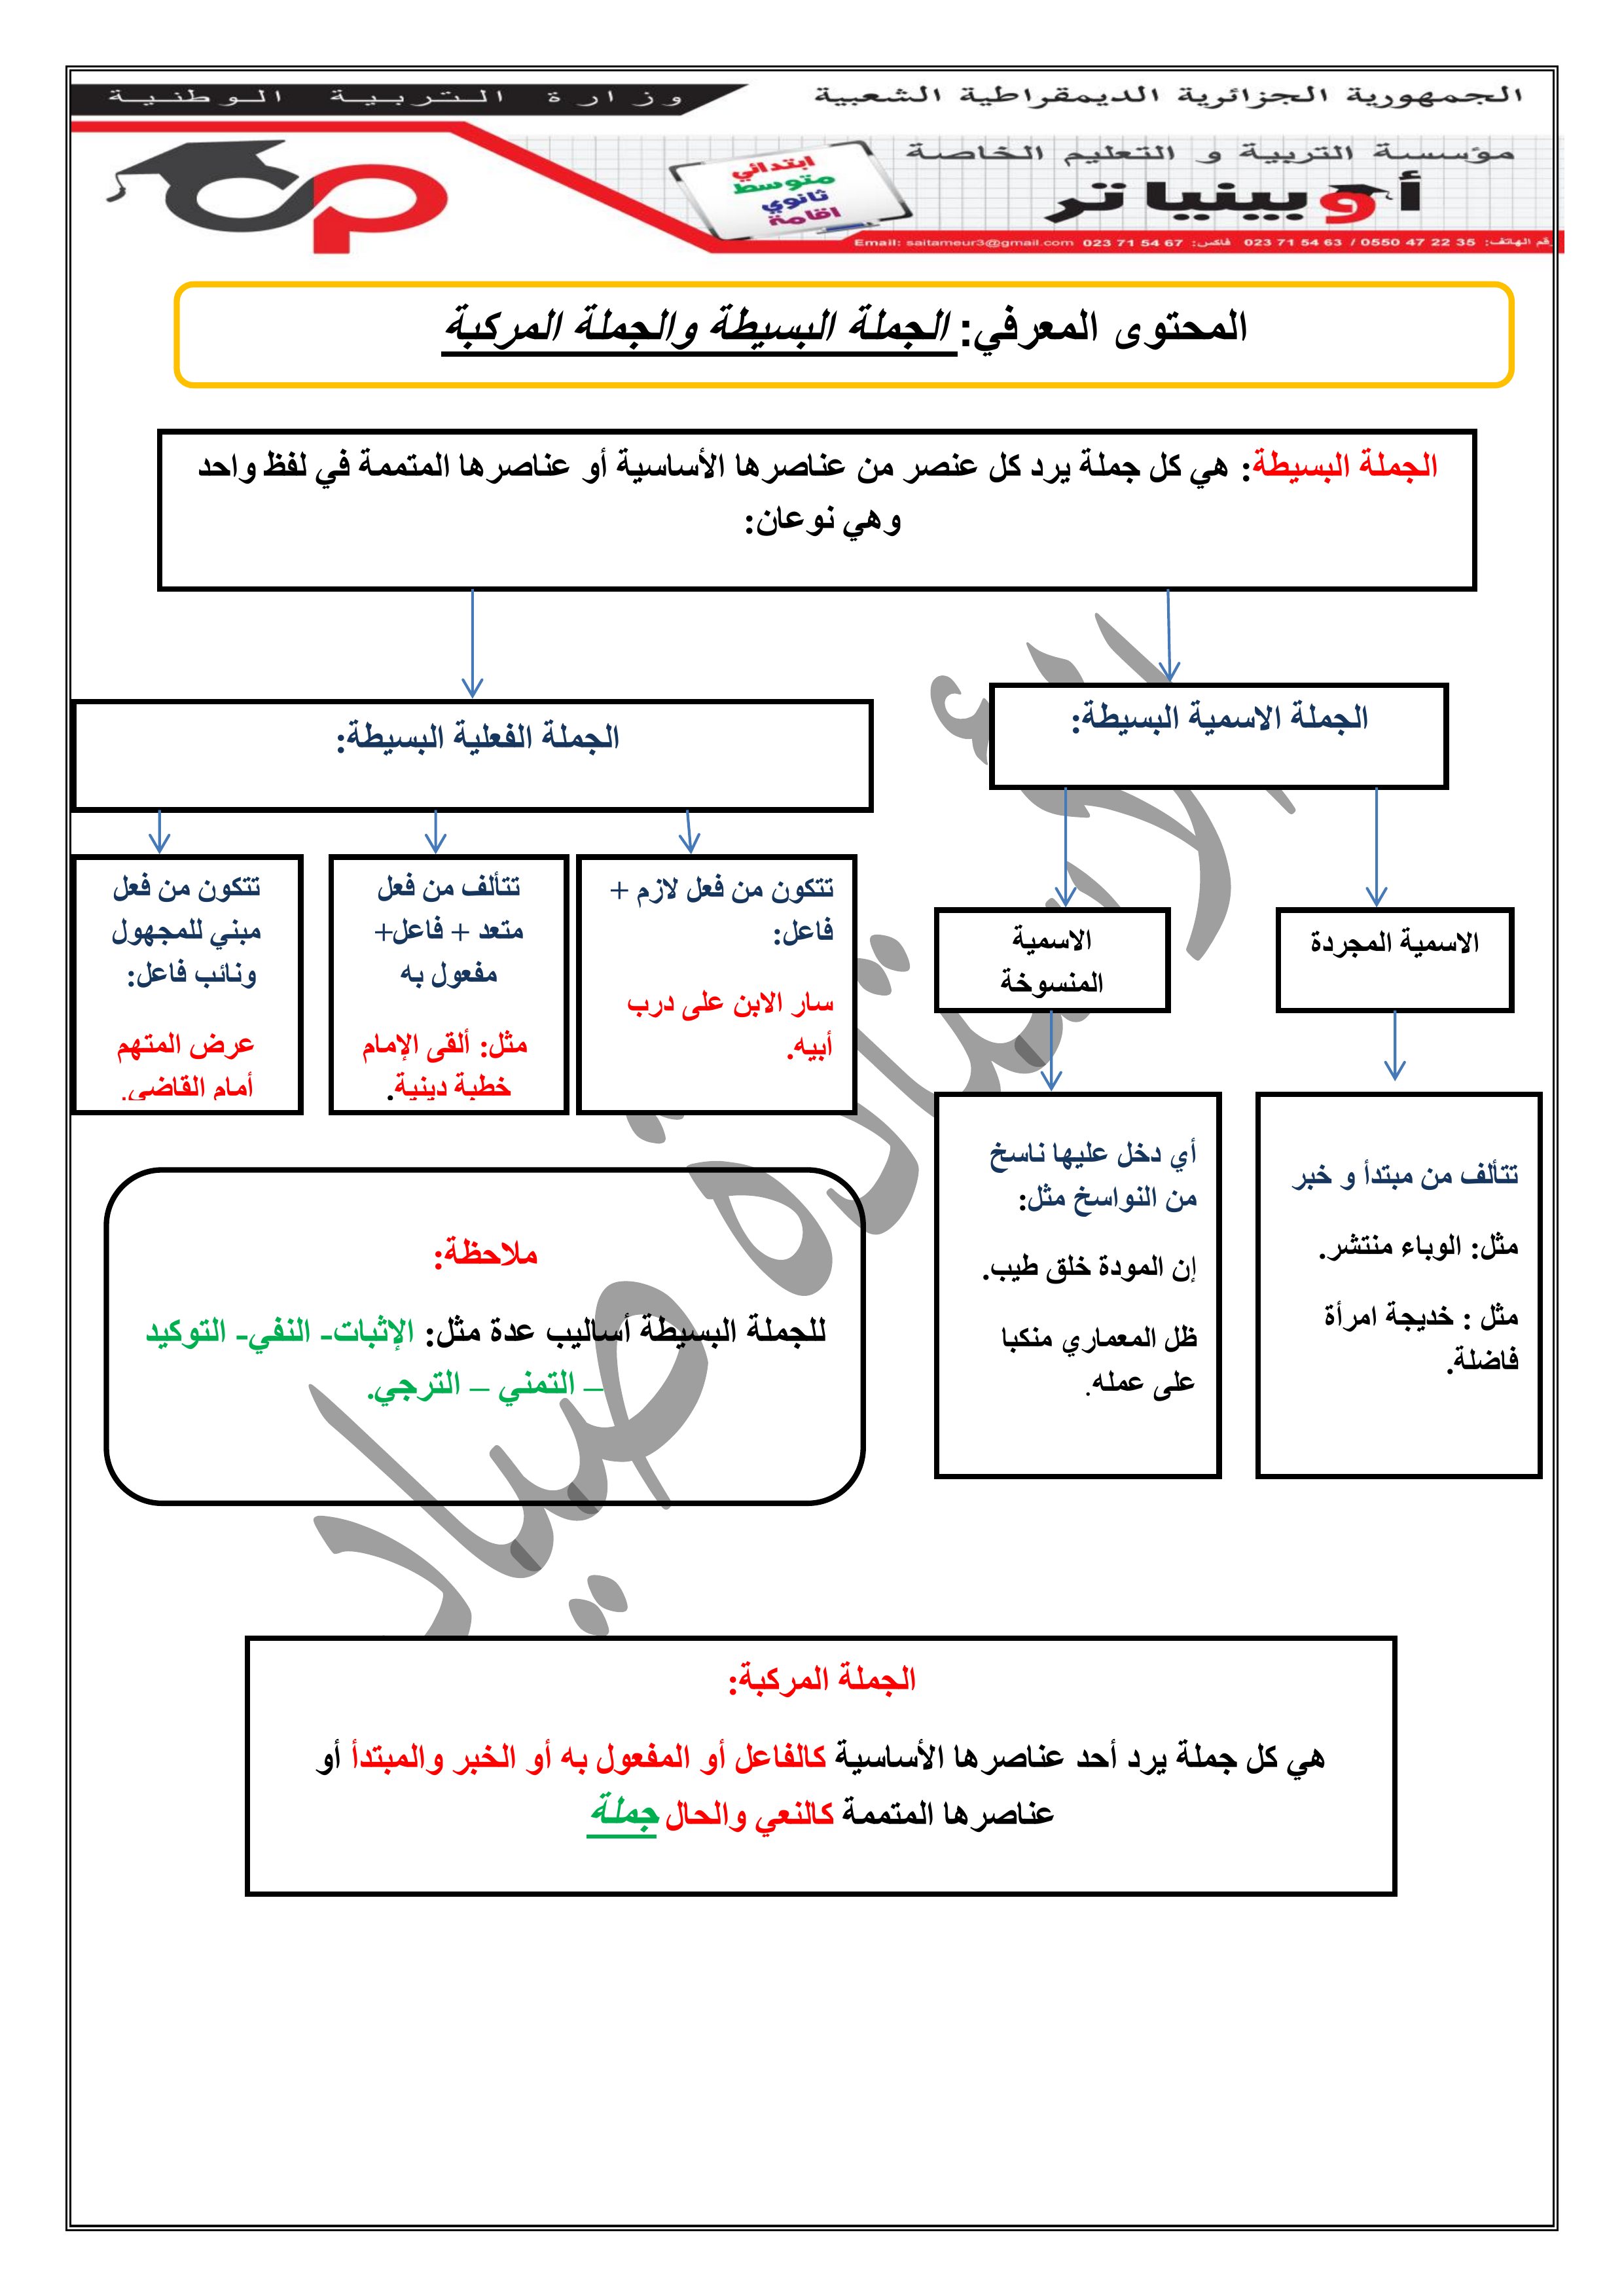 الجمهورية الجزائرية الديمقراطية الشعبية
وزارة التربية الوطنية
مؤسسة التربية و التعليم الخاصة
أوبينياتر
ابتدائي
متوسط
ثانوي
اقامة
رقم الهاتف: 35 22 47 0550 / 63 54 71 023 فاكس: 67 54 71 023 Email: saitameur3@gmail.com
المحتوى المعرفي: الجملة البسيطة والجملة المركبة
الجملة البسيطة: هي كل جملة يرد كل عنصر من عناصرها الأساسية أو عناصرها المتممة في لفظ واحد
وهي نوعان:
الجملة الاسمية البسيطة:
الجملة الفعلية البسيطة:
الاسمية المجردة
الاسمية
المنسوخة
تتألف من مبتدأ و خبر
مثل: الوباء منتشر.
مثل : خديجة امرأة
فاضلة.
أي دخل عليها ناسخ
من النواسخ مثل:
إن المودة خلق طيب.
ظل المعماري منكبا
على عمله.
تتكون من فعل لازم +
فاعل:
سار الابن على درب
أبيه.
تتألف من فعل
متعد + فاعل+
مفعول به
مثل: ألقى الإمام
خطبة دينية.
تتكون من فعل
مبني للمجهول
ونائب فاعل:
عرض المتهم
أمام القاضي.
ملاحظة:
للجملة البسيطة أساليب عدة مثل: الإثبات- النفي- التوكيد
– التمني – الترجي.
الجملة المركبة:
هي كل جملة يرد أحد عناصرها الأساسية كالفاعل أو المفعول به أو الخبر والمبتدأ أو
عناصرها المتممة كالنعي والحال جملة
الأستاذة صياد